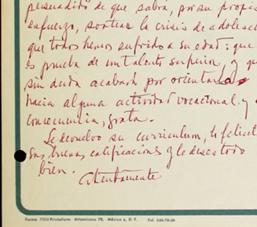 persuadido de que sabrá, por su propio
esfuerzo, sortear la crisis de adolescen
que todos hemos sufrido a su edad; que
es prueba de un talento superior, y que
sin duda acabará por orientarlo
hacia alguna actividad vocacional y
consecuencia, grata.
Le devuelvo su curriculum, lo felicito
sus buenas calificaciones y le deseo todo
bien.
Atentamente
México 6, D. F.
Tel.